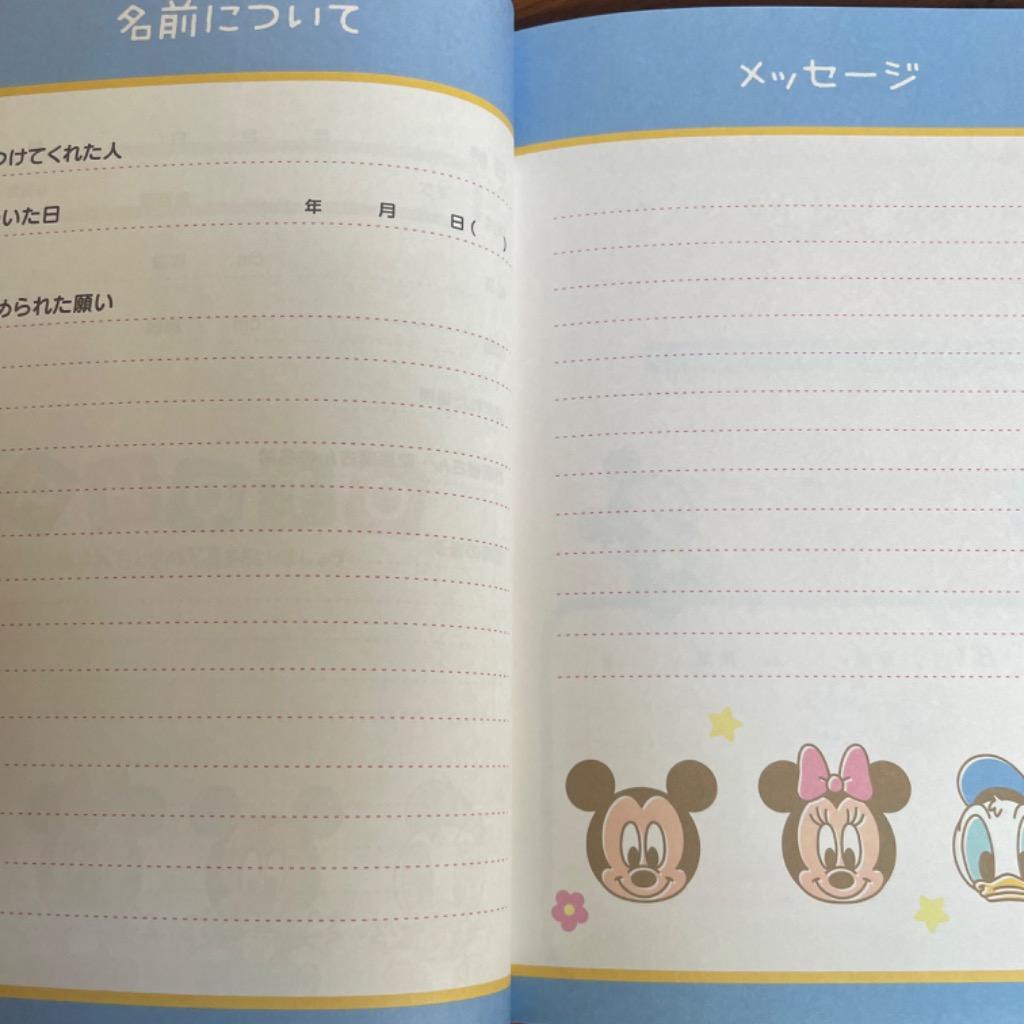 名前について
つけてくれた人
いた日 年 月 日( )
められた願い
メッセージ